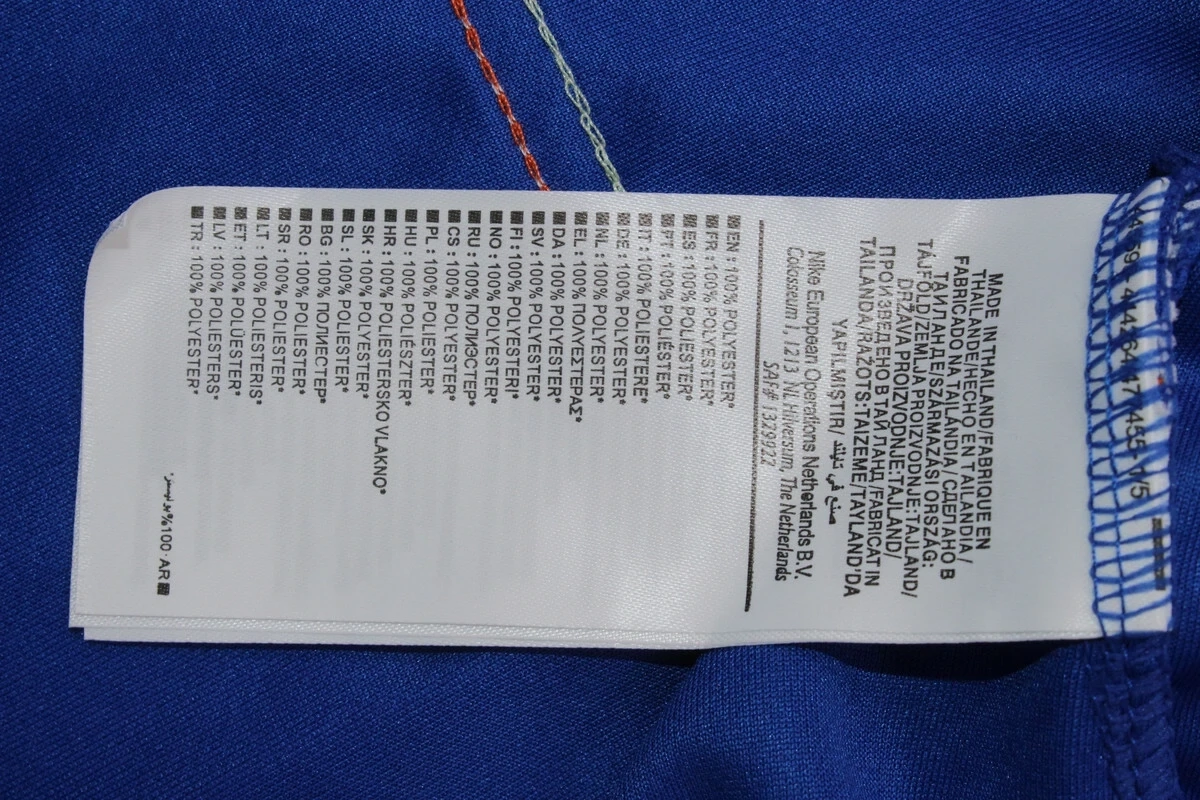 MADE IN THAILAND/FABRIQUE EN
THAILANDE/HECHO EN TAILANDIA/
FABRICADO NA TAILÂNDIA/ СДЕЛАНО В
ТАИЛАНДЕ/SZÁRMAZÁSI ORSZÁG:
TÁJFÖLD/ZEMLJA PROIZVODNJE:TAJLAND/
DRŽAVA PROIZVODNJE:TAJLAND/
ПРОИЗВЕДЕНО В ТАЙЛАНД/FABRICAT IN
TAILANDA/RAŽOTS:TAIZEME/TAYLAND'DA
YAPILMIŞTIR/ صنع في تايلند
Nike European Operations Netherlands B.V.
Colosseum 1, 1213 NL Hilversum, The Netherlands
SAF# 1329922
EN : 100% POLYESTER*
FR : 100% POLYESTER*
ES : 100% POLIESTER*
PT : 100% POLIÉSTER*
IT : 100% POLIESTERE*
DE : 100% POLYESTER*
NL : 100% POLYESTER*
EL : 100% ΠΟΛΥΕΣΤΕΡΑΣ*
DA : 100% POLYESTER*
SV : 100% POLYESTER*
FI : 100% POLYESTERI*
NO : 100% POLYESTER*
RU : 100% ПОЛИЭСТЕР*
CS : 100% POLYESTER*
PL : 100% POLIESTER*
HU : 100% POLIÉSZTER*
HR : 100% POLIESTERSKO VLAKNO*
SK : 100% POLYESTER*
SL : 100% POLIESTER*
BG : 100% ПОЛИЕСТЕР*
RO : 100% POLIESTER*
SR : 100% POLIESTER*
LT : 100% POLIESTERIS*
ET : 100% POLÜESTER*
LV : 100% POLIESTERS*
TR : 100% POLYESTER*
AR · 100%